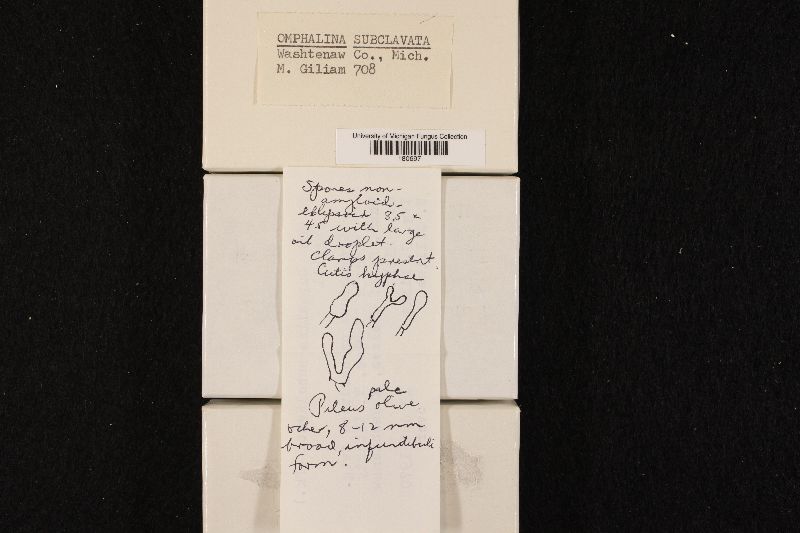 OMPHALINA SUBCLAVATA
Washtenaw Co., Mich.
M. Giliam 708
University of Michigan Fungus Collection
180697
Spores non-
amyloid.
ellipsoid 8.5 x
4.5 with large
oil droplet.
Clamps present.
Cutis hyphae
pale
Pileus olive
ocher, 8-12 mm
broad, infundibuli
form.